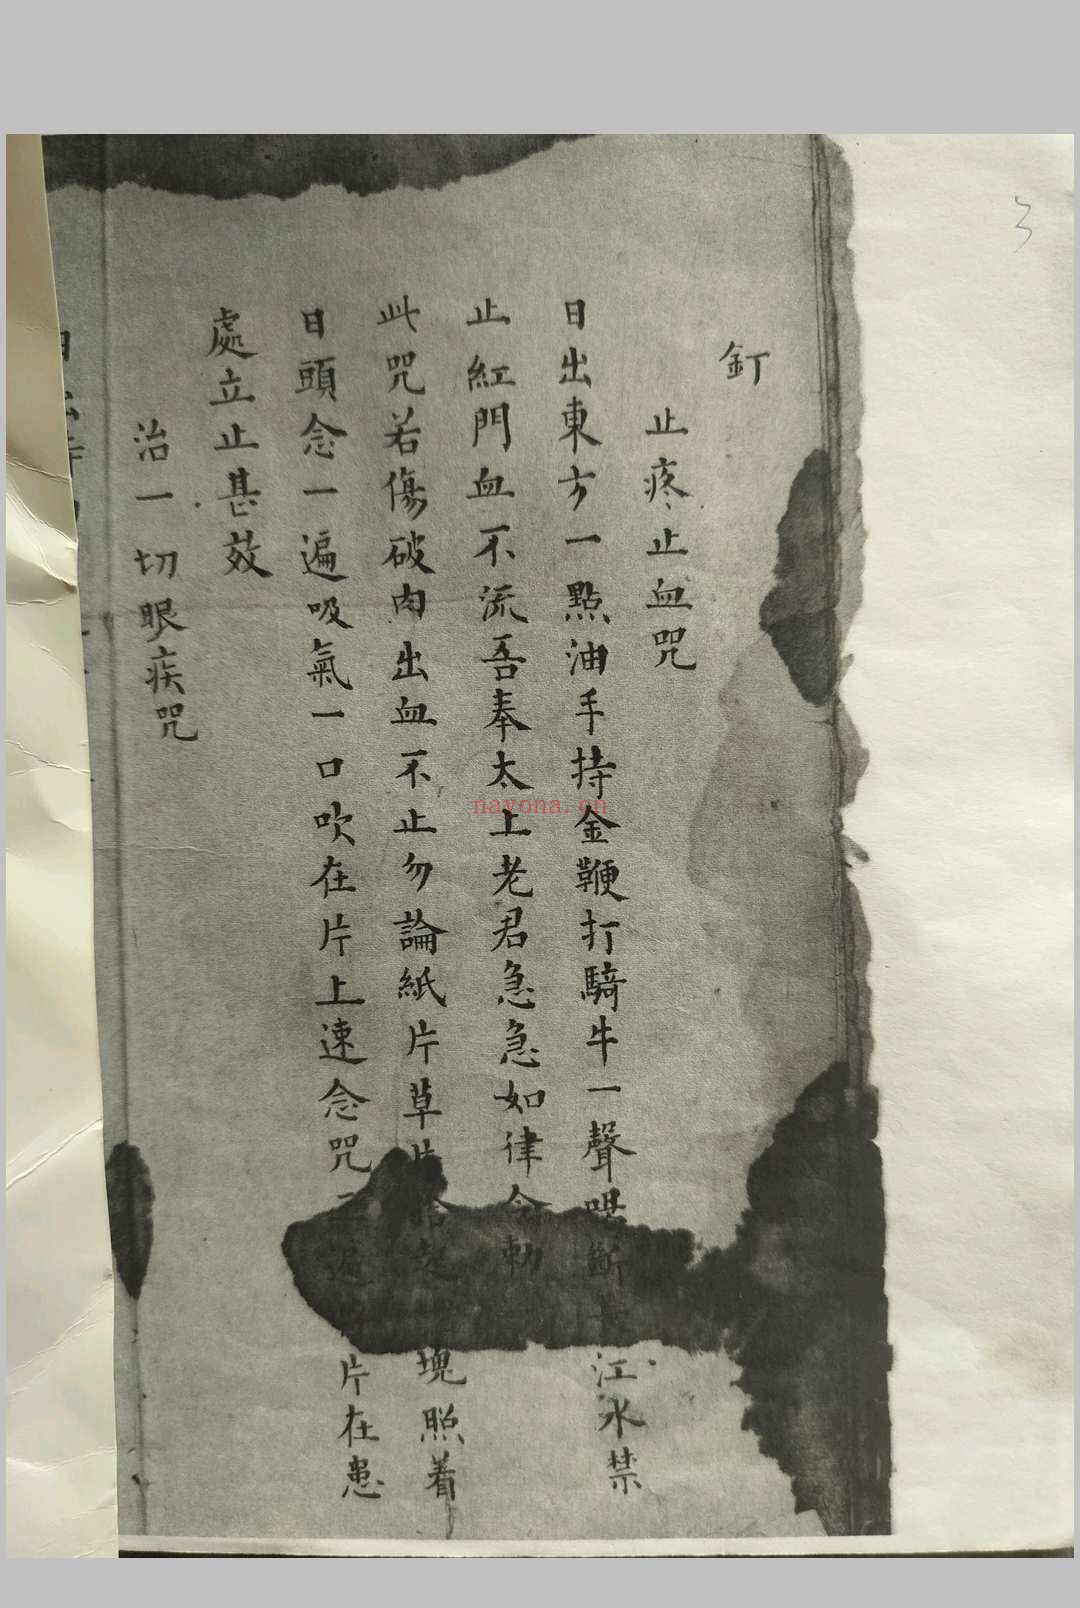 3
釘
止疼止血咒
日出東方一點油手持金鞭打騎牛一聲喝斷長江水禁
止紅門血不流吾奉太上老君急急如律令勅
此咒若傷破肉出血不止勿論紙片草片拾起一塊照着
日頭念一遍吸氣一口吹在片上速念咒三遍片在患
處立止甚效
治一切眼疾咒
nayona.cn